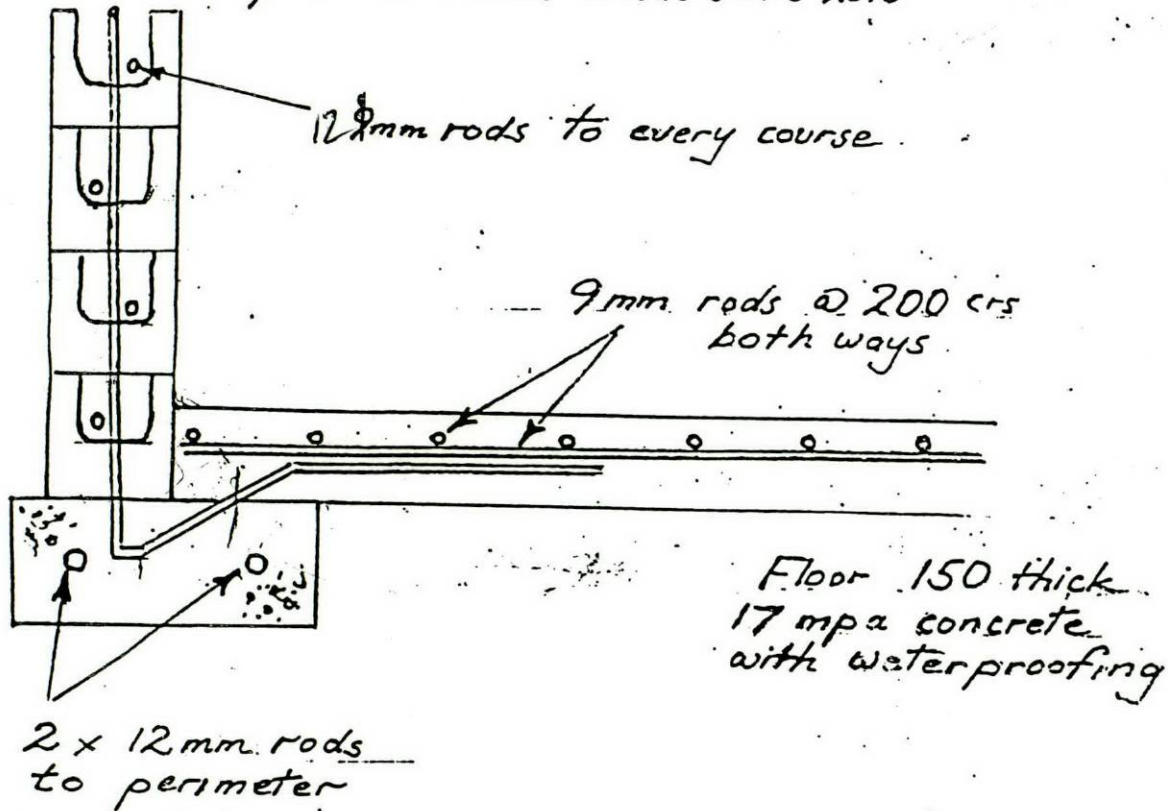 12mm rods to every course
9mm rods @ 200 crs
both ways
Floor 150 thick
17 mpa concrete
with waterproofing
2 x 12mm rods
to perimeter